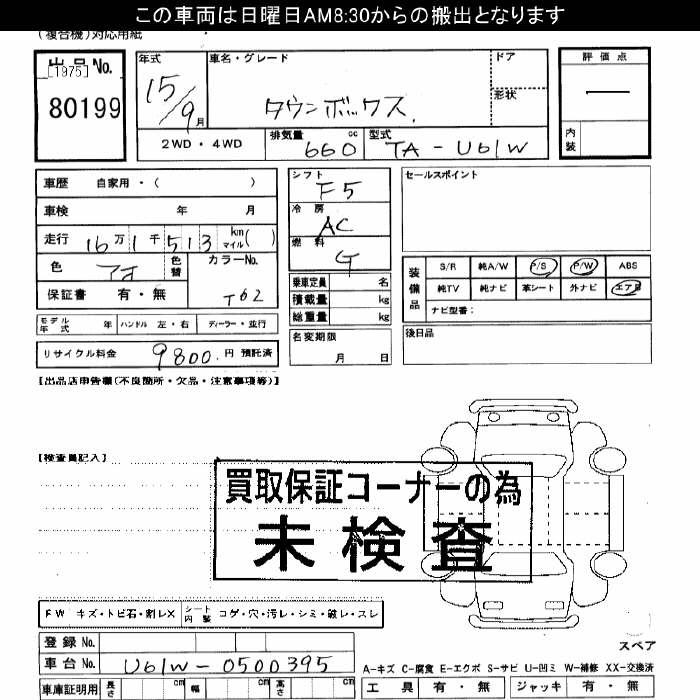 この車両は日曜日AM8:30からの搬出となります
(複合機)対応用紙
出品No.
[1975]
80199
年式
15/9月
車名・グレード
タウンボックス
ドア
形状
評価点
—
内装
2WD・4WD
排気量 660 cc
型式 TA-U61W
車歴 自家用・( )
車検 年 月
走行 16万1千513 km マイル( )
色 アオ 色替
カラーNo. T62
保証書 有・無
シフト F5
冷房 AC
燃料 G
乗車定員 名
積載量 kg
総重量 kg
名変期限 月 日
セールスポイント
装備品
S/R 純A/W P/S P/W ABS
純TV 純ナビ 革シート 外ナビ エアB
ナビ型番:
後日品
モデル年式 年 ハンドル 左・右 ディーラー・並行
リサイクル料金 9800.円 預託済
【出品店申告欄(不良箇所・欠品・注意事項等)】
【検査員記入】
買取保証コーナーの為
未検査
FW キズ・トビ石・割レX シート内装 コゲ・穴・汚レ・シミ・破レ・スレ
登録No.
車台No. U61W-0500395
スペア
A-キズ C-腐食 E-エクボ S-サビ U-凹ミ W-補修 XX-交換済
車庫証明用 長さ cm 幅 cm 高さ cm
工具 有・無 ジャッキ 有・無